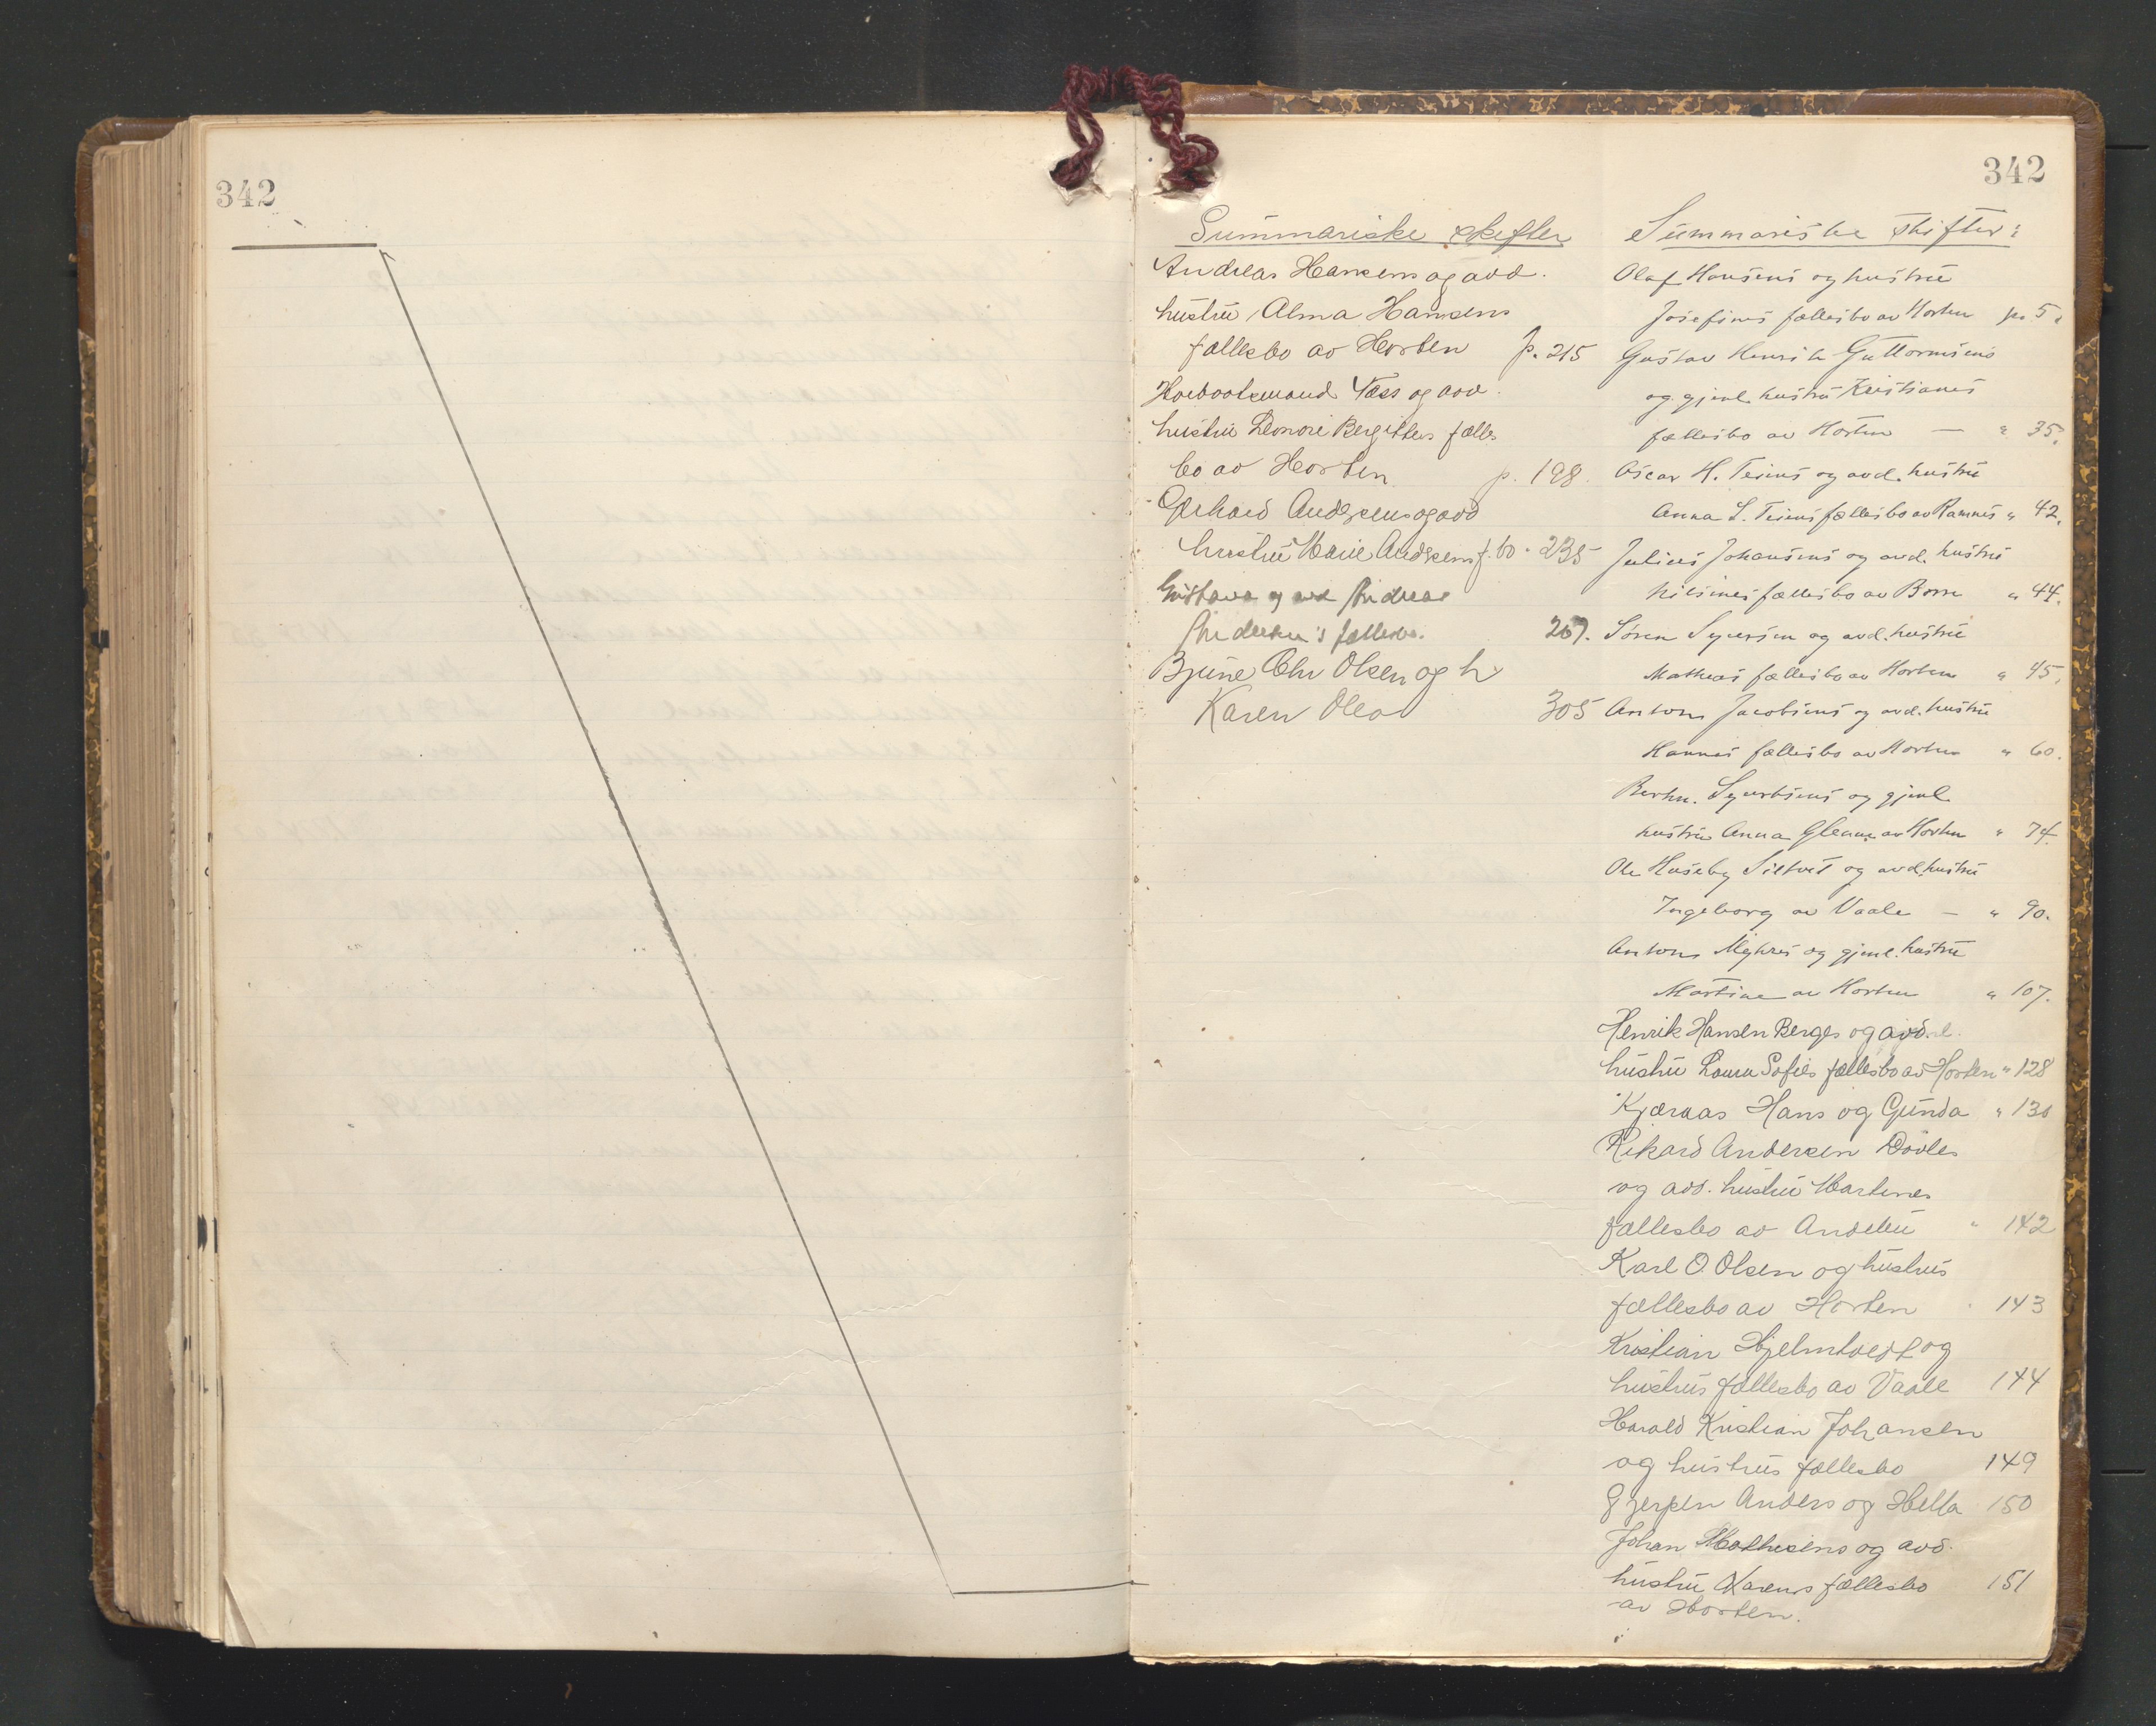 342
342
Summariske skifter
Andreas Hansens og avd.
hustru Alma Hansens
fællesbo av Horten p. 215
Næss og avd.
hustru Leonore Bergittes fælles
bo av Horten p. 198.
Gerhard Andersens og avd
hustru Marie Andersens f.bo - 235
Gustava og avd Andreas
fællesbo. 267.
Bjune Chr Olsen og h
Karen Olea 305
Summariske skifter:
Olaf Hansens og hustru
Josefines fællesbo av Horten p. 5.
Gustav Henrik Guttormsens
og gjenl. hustru Kristianes
fællesbo av Horten — " 35.
Oscar H. Teiens og avd. hustru
Anna L. Teiens fællesbo av Ramnes " 42.
Julius Johansens og avd. hustru
Nilsines fællesbo av Borre " 44.
Søren Syversen og avd. hustru
Matheas fællesbo av Horten " 45.
Antons Jacobsens og avd. hustru
Hannas fællesbo av Horten " 60.
Bernh. Syvertsens og gjenl.
hustru Anna av Horten " 74.
Ole Huseby Siltvet og avd. hustru
Ingeborg av Vaale — " 90.
Antons Myhres og gjenl. hustru
Martine av Horten " 107.
Henrik Hansen Berges og avd.
hustru Laura Sofies fællesbo av Horten " 128
Kjæraas Hans og Gunda " 130
Rikard Andersen
og avd. hustru Martines
fællesbo av Andebu " 142
Karl O. Olsen og hustrus
fællesbo av Horten " 143
Kristian Hjelmtvedt og
hustrus fællesbo av Vaale 144
Harald Kristian Johansen
og hustrus fællesbo 149
Gjerpen Anders og Hella 150
Johan Mathisens og avd.
hustru Karens fællesbo 151
av Horten.